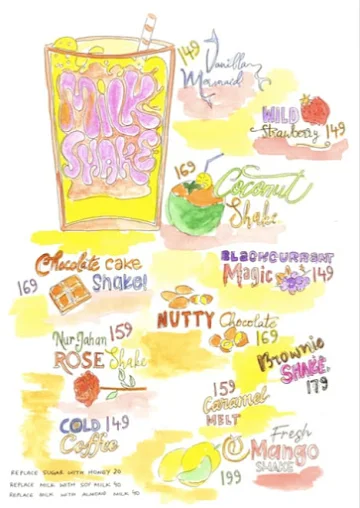 MILK
SHAKE
149 Vanilla
Mermaid
WILD
Strawberry 149
169
Coconut
Shake
Chocolate cake
169 Shake!
BLACKCURRANT
Magic 149
NUTTY Chocolate
169
Nur Jahan 159
ROSE Shake
Brownie
SHAKE
179
159
Caramel
MELT
COLD 149
Coffee
Fresh
Mango
SHAKE
199
REPLACE SUGAR WITH HONEY 20
REPLACE MILK WITH SOY MILK 40
REPLACE MILK WITH ALMOND MILK 40